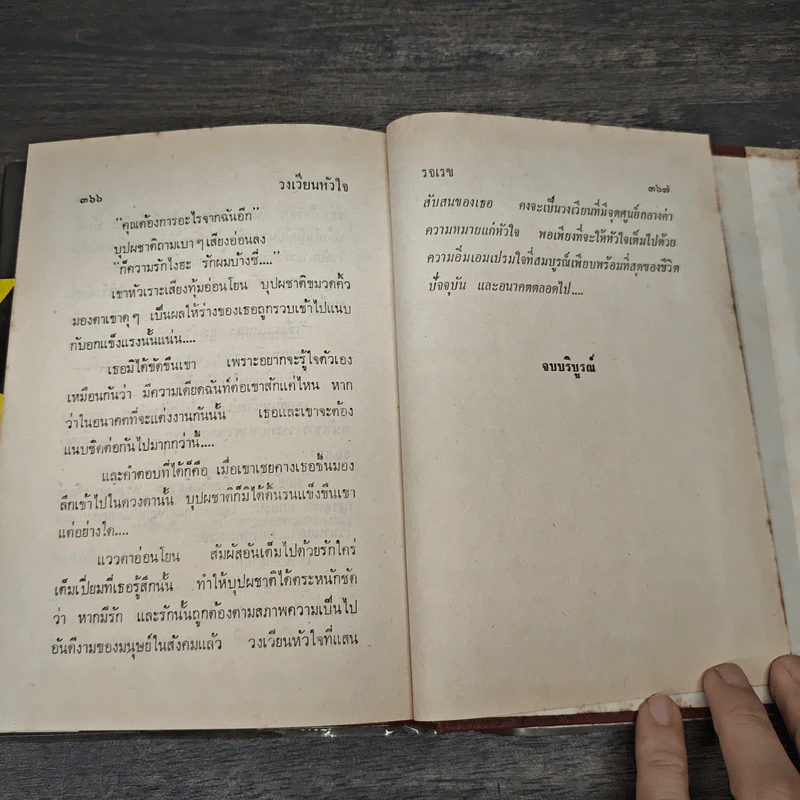 ๓๖๖ วงเวียนหัวใจ
"คุณต้องการอะไรจากฉันอีก"
บุปผชาติถามเบาๆ เสียงอ่อนลง
"ก็ความรักไงฮะ รักผมบ้างซี...."
เขาหัวเราะเสียงทุ้มอ่อนโยน บุปผชาติขมวดคิ้ว
มองตาเขาดุๆ เป็นผลให้ร่างของเธอถูกรวบเข้าไปแนบ
กับอกแข็งแรงนั้นแน่น....
เธอมิได้ขัดขืนเขา เพราะอยากจะรู้ใจตัวเอง
เหมือนกันว่า มีความเดียดฉันท์ต่อเขาสักแค่ไหน หาก
ว่าในอนาคตที่จะแต่งงานกันนั้น เธอและเขาจะต้อง
แนบชิดต่อกันไปมากกว่านี้....
และคำตอบที่ได้ก็คือ เมื่อเขาเชยคางเธอขึ้นมอง
ลึกเข้าไปในดวงตานั้น บุปผชาติก็มิได้ดิ้นรนแข็งขืนเขา
แต่อย่างใด....
แววตาอ่อนโยน สัมผัสอันเต็มไปด้วยรักใคร่
เต็มเปี่ยมที่เธอรู้สึกนั้น ทำให้บุปผชาติได้ตระหนักชัด
ว่า หากมีรัก และรักนั้นถูกต้องตามสภาพความเป็นไป
อันดีงามของมนุษย์ในสังคมแล้ว วงเวียนหัวใจที่แสน
รจเรข ๓๖๗
สับสนของเธอ คงจะเป็นวงเวียนที่มีจุดศูนย์กลางค่า
ความหมายแก่หัวใจ พอเพียงที่จะให้หัวใจเต็มไปด้วย
ความอิ่มเอมเปรมใจที่สมบูรณ์เพียบพร้อมที่สุดของชีวิต
ปัจจุบัน และอนาคตตลอดไป....
จบบริบูรณ์